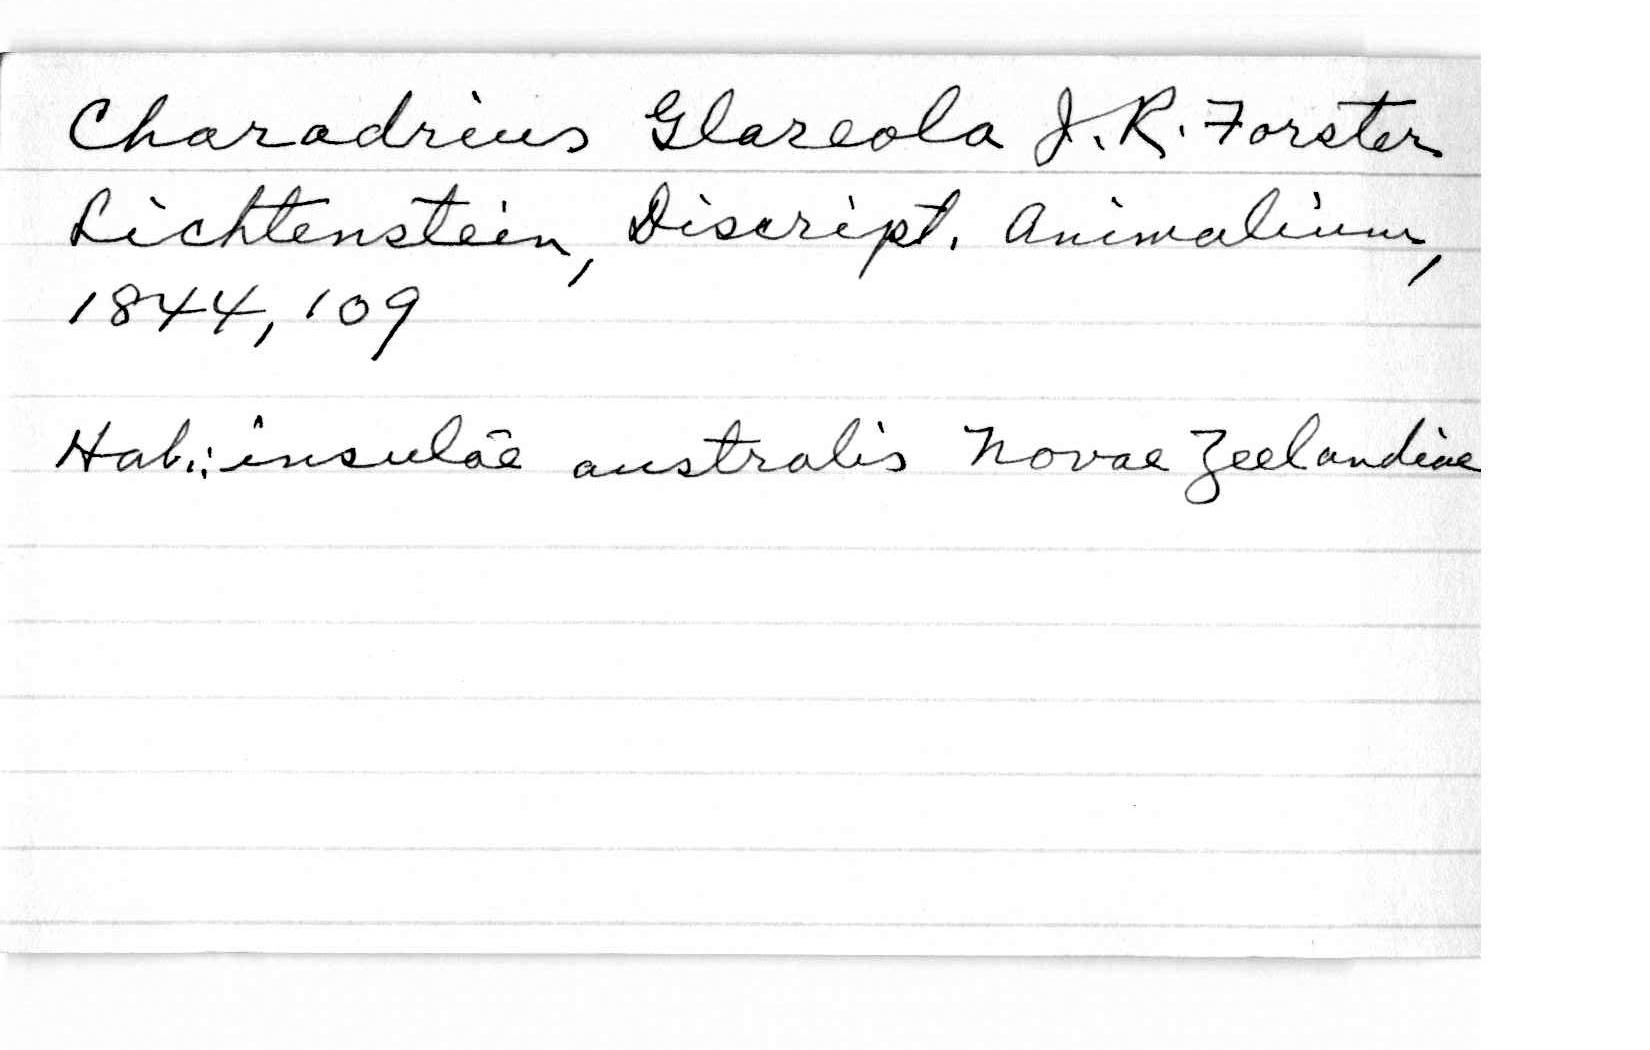 Charadrius Glareola J. R. Forster
Lichtenstein, Discript. Animalium,
1844, 109
Hab.: insulāe australis Novae Zeelandiae